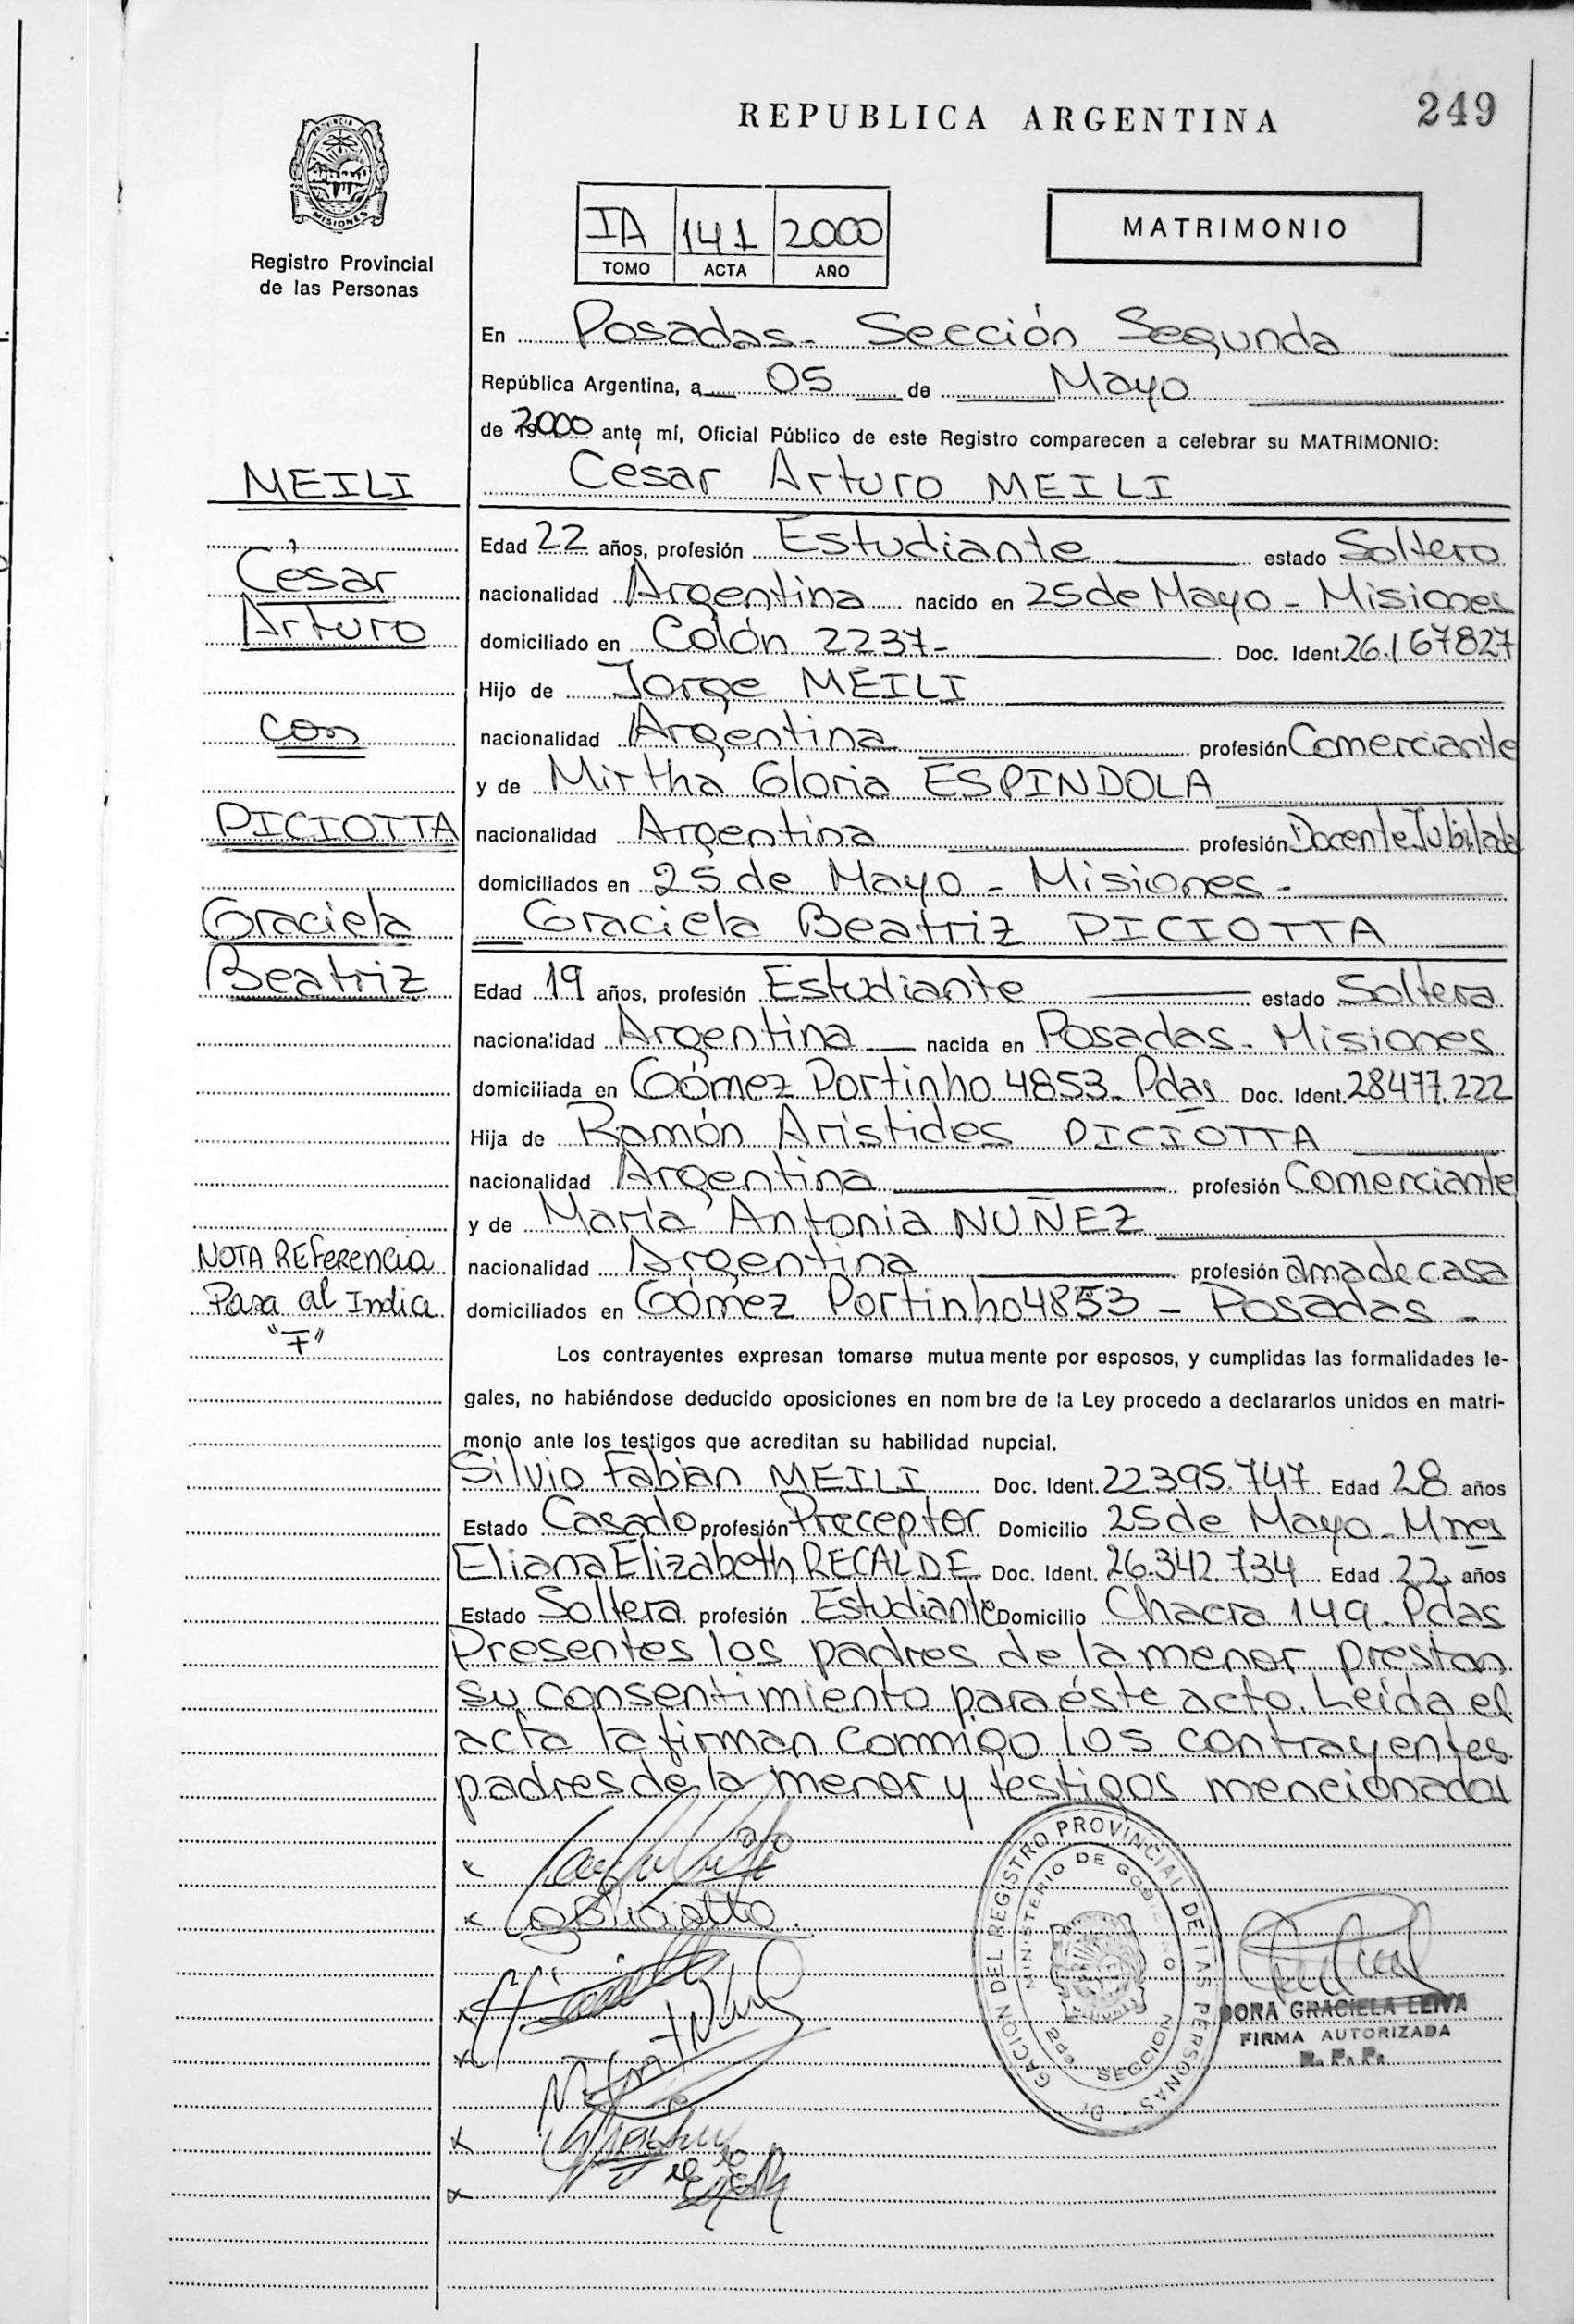 249
REPUBLICA ARGENTINA
PROVINCIA DE
MISIONES
Registro Provincial
de las Personas
IA 141 2000
TOMO ACTA AÑO
MATRIMONIO
En Posadas- Sección Segunda
República Argentina, a 05 de Mayo
de 2000 ante mí, Oficial Público de este Registro comparecen a celebrar su MATRIMONIO:
César Arturo MEILI
MEILI
César
Arturo
con
PICIOTTA
Graciela
Beatriz
Edad 22 años, profesión Estudiante estado Soltero
nacionalidad Argentina nacido en 25 de Mayo - Misiones
domiciliado en Colón 2237- Doc. Ident. 26.167827
Hijo de Jorge MEILI
nacionalidad Argentina profesión Comerciante
y de Mirtha Gloria ESPINDOLA
nacionalidad Argentina profesión Docente Jubilada
domiciliados en 25 de Mayo - Misiones -
Graciela Beatriz PICIOTTA
Edad 19 años, profesión Estudiante estado Soltera
nacionalidad Argentina nacida en Posadas - Misiones
domiciliada en Gómez Portinho 4853- Pdas Doc. Ident. 28477.222
Hija de Ramón Arístides PICIOTTA
nacionalidad Argentina profesión Comerciante
y de María Antonia NUÑEZ
nacionalidad Argentina profesión ama de casa
domiciliados en Gómez Portinho 4853 - Posadas -
NOTA Referencia
Pasa al Indice
"F"
Los contrayentes expresan tomarse mutuamente por esposos, y cumplidas las formalidades le-
gales, no habiéndose deducido oposiciones en nombre de la Ley procedo a declararlos unidos en matri-
monio ante los testigos que acreditan su habilidad nupcial.
Silvio Fabian MEILI Doc. Ident. 22.395.747 Edad 28 años
Estado Casado profesión Preceptor Domicilio 25 de Mayo - Mnes
Eliana Elizabeth RECALDE Doc. Ident. 26.342.734 Edad 22 años
Estado Soltera profesión Estudiante Domicilio Chacra 149 - Pdas
Presentes los padres de la menor prestan
su consentimiento para éste acto. Leída el
acta la firman conmigo los contrayentes
padres de la menor y testigos mencionados
REGISTRO PROVINCIAL DE LAS PERSONAS
MINISTERIO DE GOBIERNO
SECCION
DORA GRACIELA LEIVA
FIRMA AUTORIZADA
R. P. P.